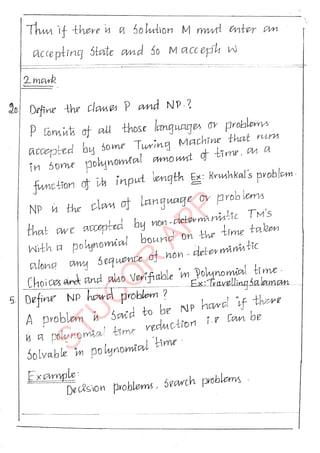 Thus if there is a solution M must enter an
accepting state and so M accepts W
2 mark
Define the classes P and NP?
P consists of all those languages or problems
accepted by some Turing Machine that runs
in some polynomial amount of time, as a
function of its input length Ex: Krushkal's problem.
NP is the class of Language or problems
that are accepted by non-deterministic TM's
with a polynomial bound on the time taken
along any sequence of non-deterministic
choices and and also verifiable in polynomial time.
Ex: Travelling Salaman
5. Define NP hard problem?
A problem is said to be NP hard if there
is a polynomial time reduction i.e can be
Solvable in polynomial time.
Example:
Decision problems, Search problems.
STUCOR APP